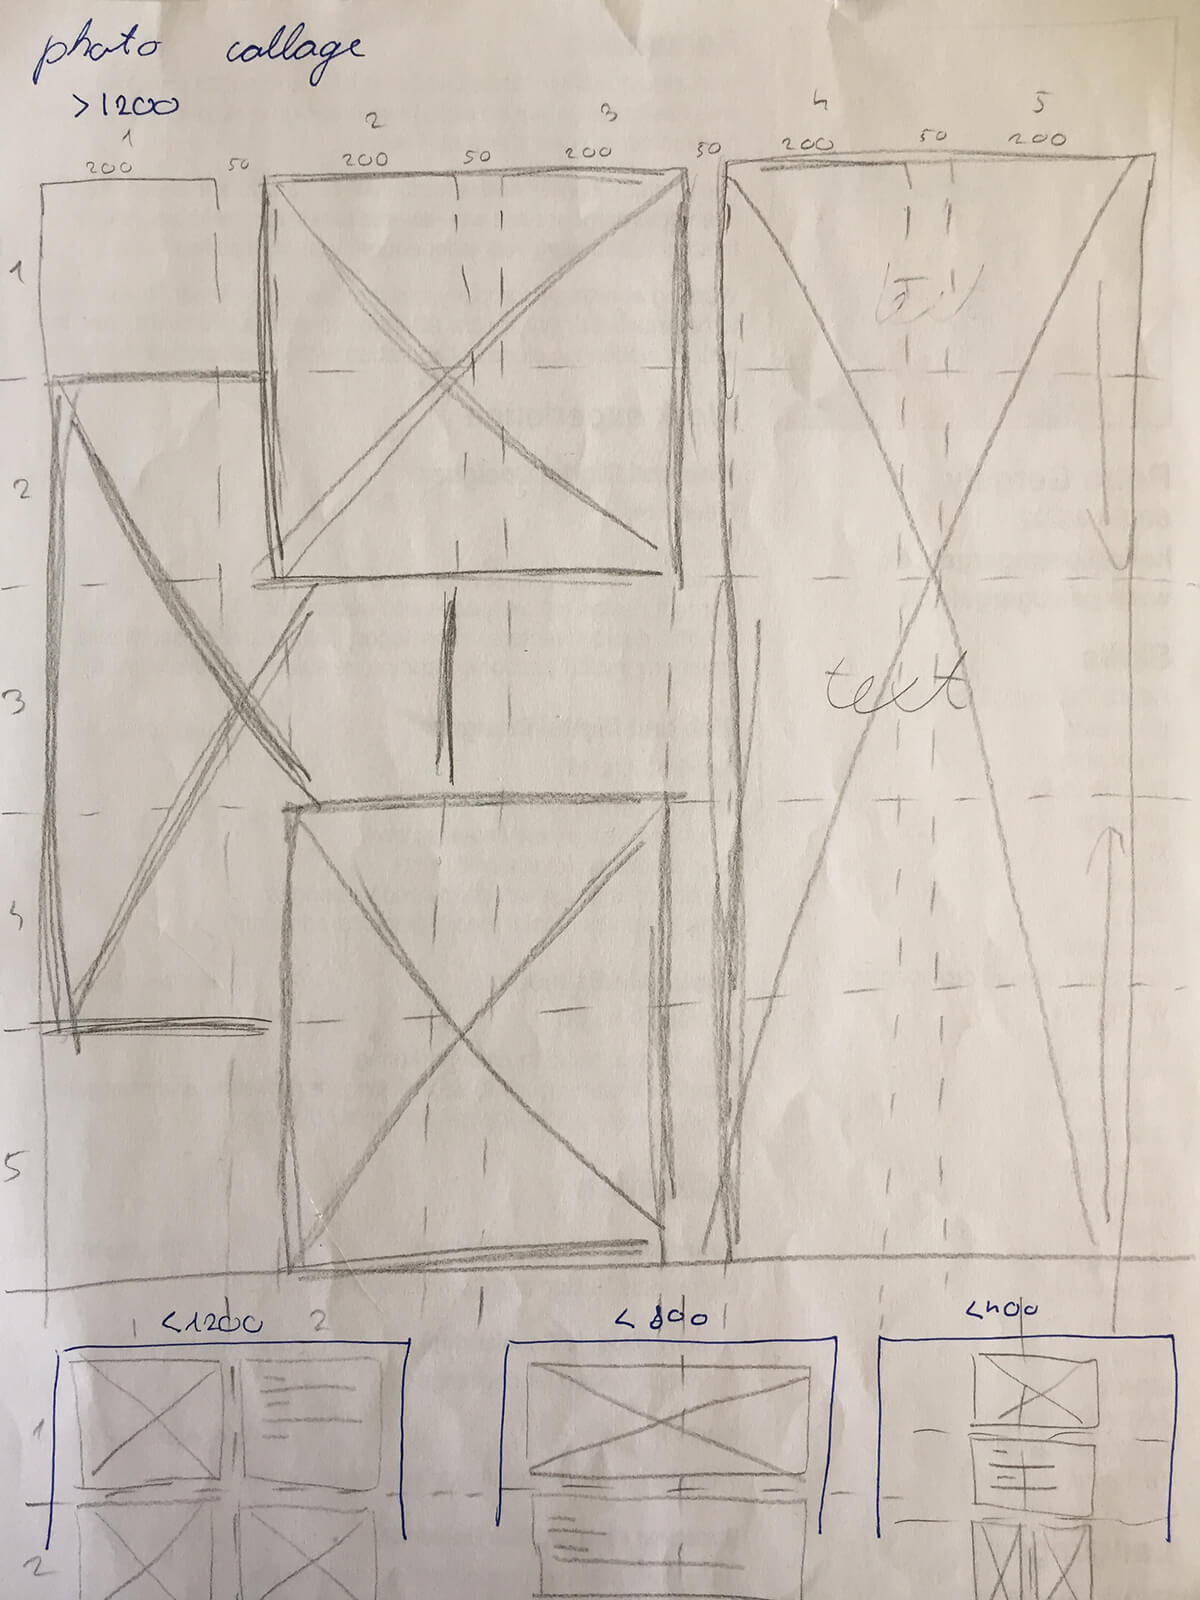 photo collage
>1200
1 2 3 4 5
200 50 200 50 200 50 200 50 200
1
2
3
text
4
5
<1200 <800 <400
1 2
1
2